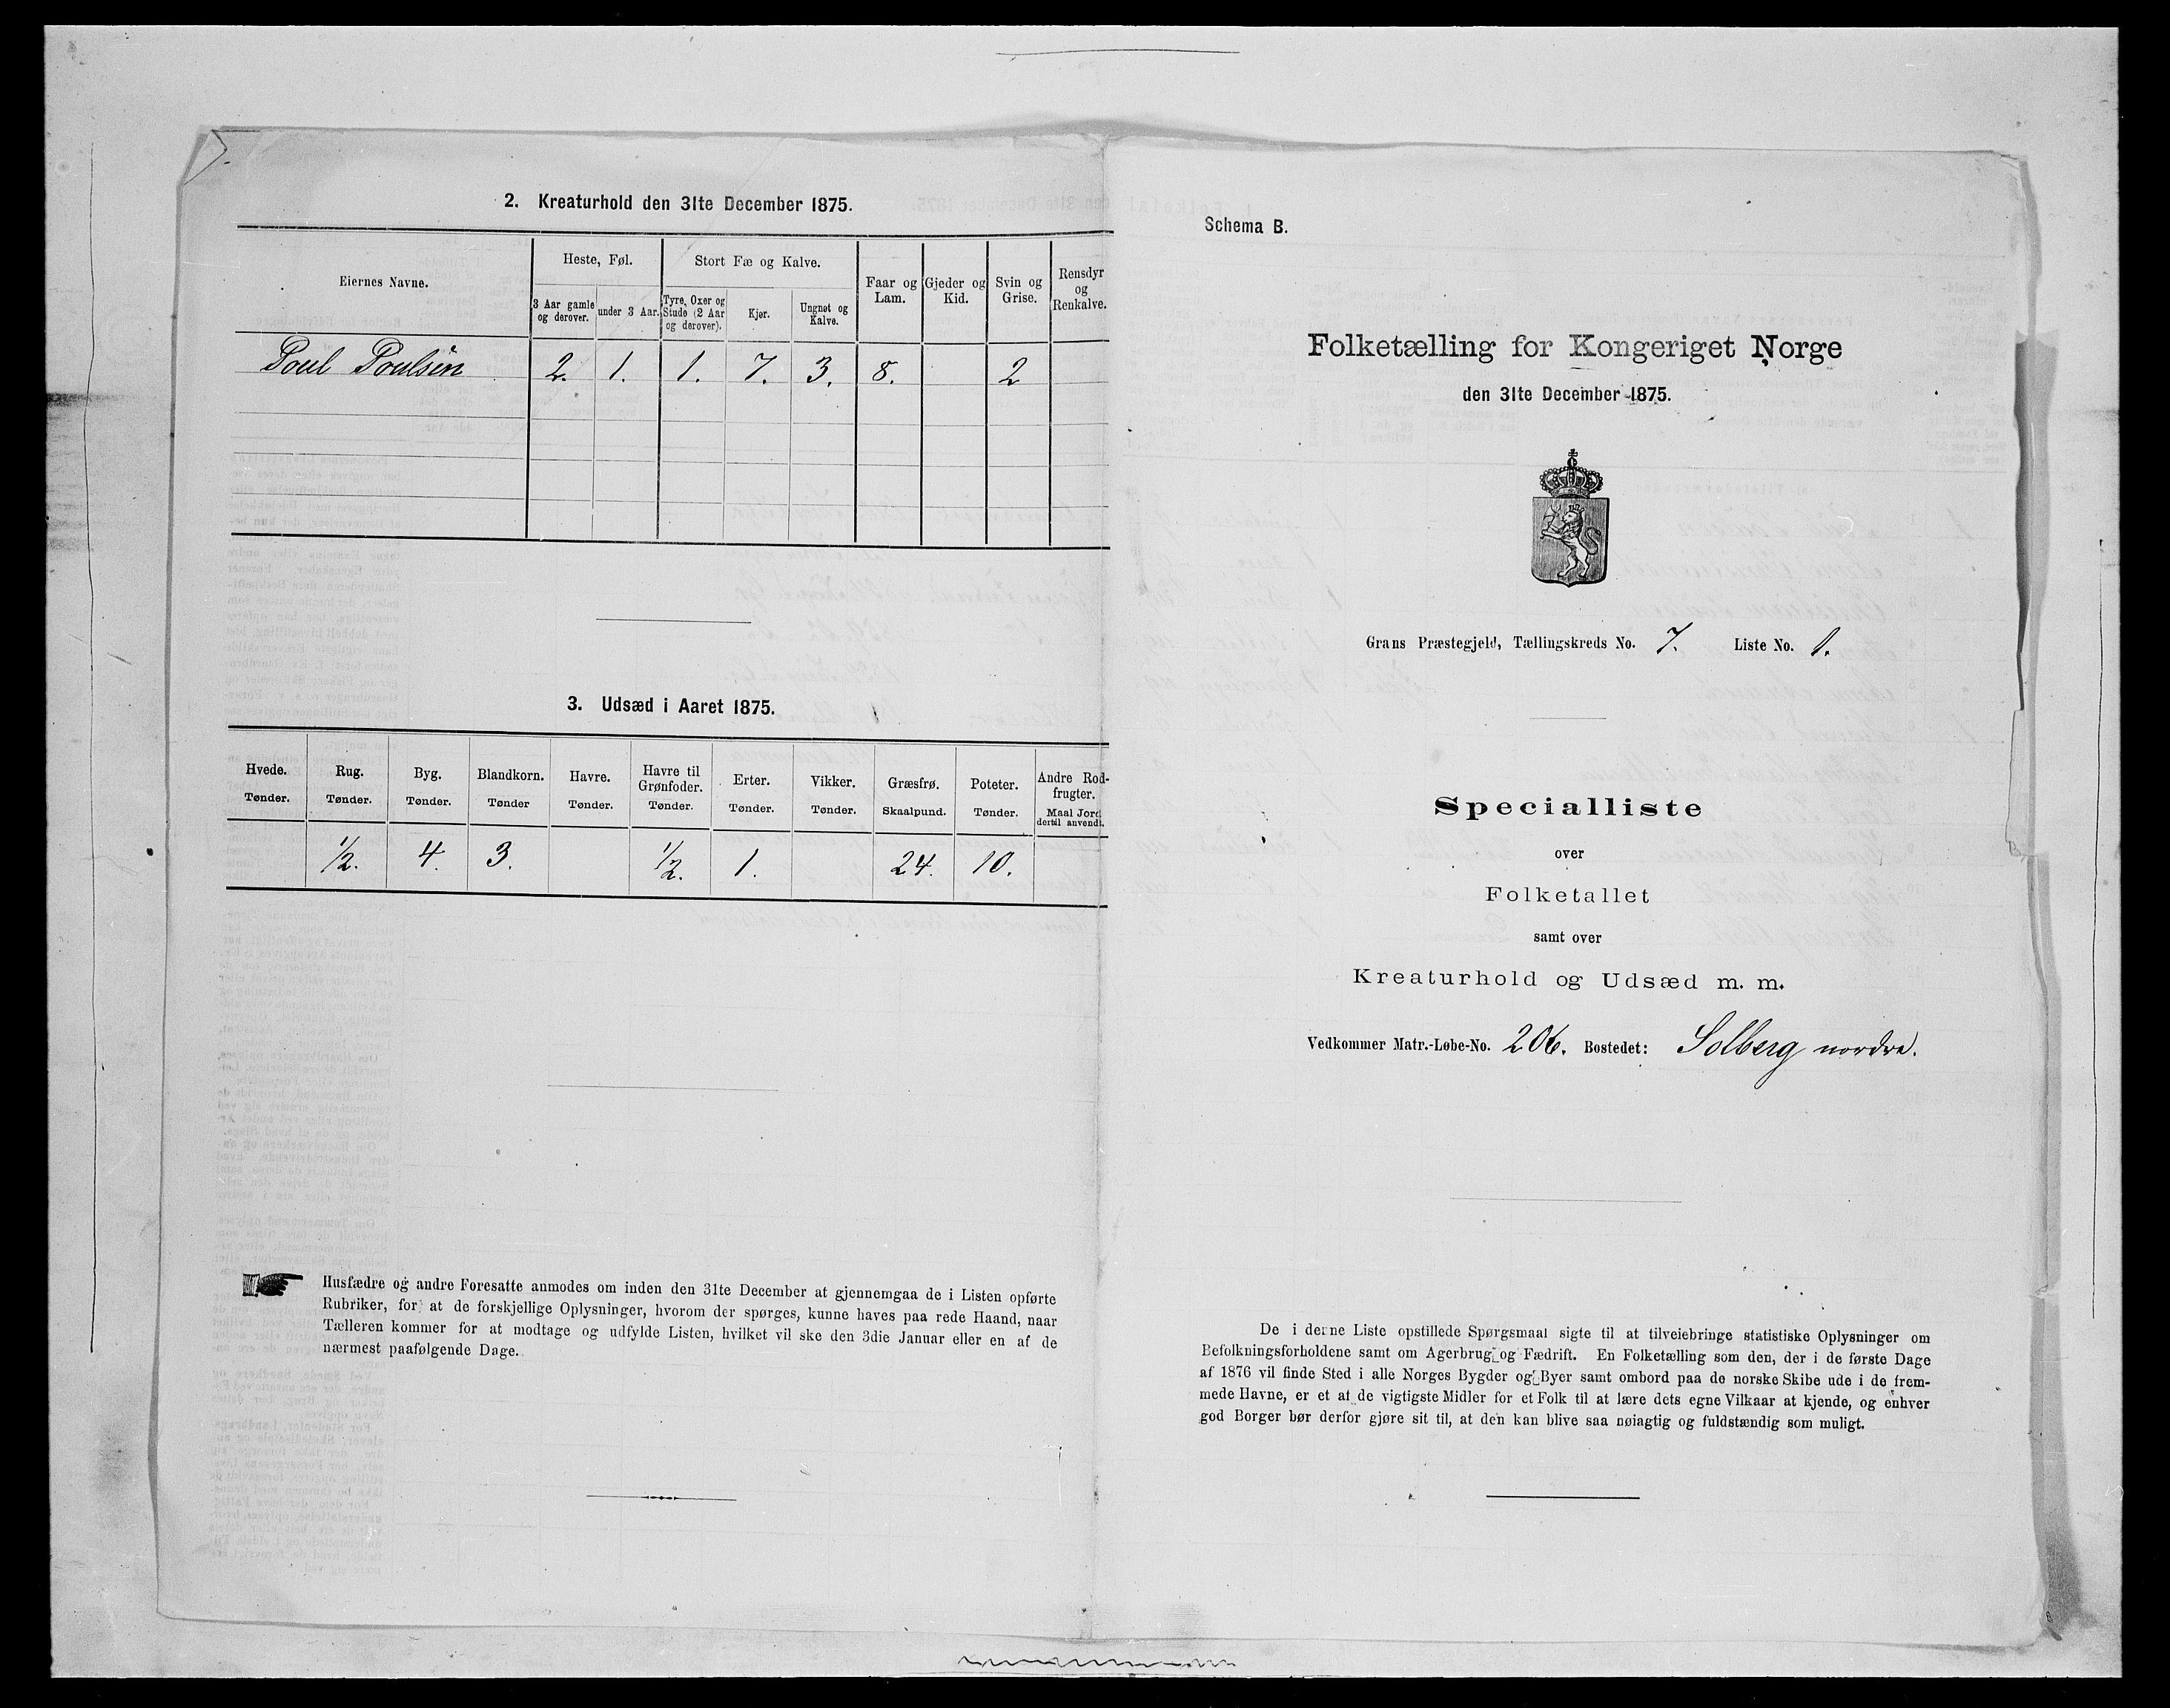 2. Kreaturhold den 31te December 1875.
Eiernes Navne.
Heste, Føl.
Stort Fæ og Kalve.
3 Aar gamle og derover.
under 3 Aar.
Tyre, Oxer og Stude (2 Aar og derover).
Kjør.
Ungnøt og Kalve.
Faar og Lam.
Gjeder og Kid.
Svin og Grise.
Rensdyr og Renkalve.
Poul Poulsen 2. 1. 1. 7. 3. 8. 2
3. Udsæd i Aaret 1875.
Hvede. Rug. Byg. Blandkorn. Havre. Havre til Grønfoder. Erter. Vikker. Græsfrø. Poteter. Andre Rodfrugter.
Tønder. Tønder. Tønder. Tønder Tønder. Tønder. Tønder. Tønder. Skaalpund. Tønder. Maal Jord dertil anvendt.
1/2. 4. 3. 1/2. 1. 24. 10.
Husfædre og andre Foresatte anmodes om inden den 31te December at gjennemgaa de i Listen opførte
Rubriker, for at de forskjellige Oplysninger, hvorom der spørges, kunne haves paa rede Haand, naar
Tælleren kommer for at modtage og udfylde Listen, hvilket vil ske den 3die Januar eller en af de
nærmest paafølgende Dage.
Schema B.
Folketælling for Kongeriget Norge
den 31te December 1875.
Grans Præstegjeld, Tællingskreds No. 7. Liste No. 1.
Specialliste
over
Folketallet
samt over
Kreaturhold og Udsæd m. m.
Vedkommer Matr.-Løbe-No. 206. Bostedet: Solberg nordre.
De i denne Liste opstillede Spørgsmaal sigte til at tilveiebringe statistiske Oplysninger om
Befolkningsforholdene samt om Agerbrug og Fædrift. En Folketælling som den, der i de første Dage
af 1876 vil finde Sted i alle Norges Bygder og Byer samt ombord paa de norske Skibe ude i de frem-
mede Havne, er et af de vigtigste Midler for et Folk til at lære dets egne Vilkaar at kjende, og enhver
god Borger bør derfor gjøre sit til, at den kan blive saa nøiagtig og fuldstændig som muligt.